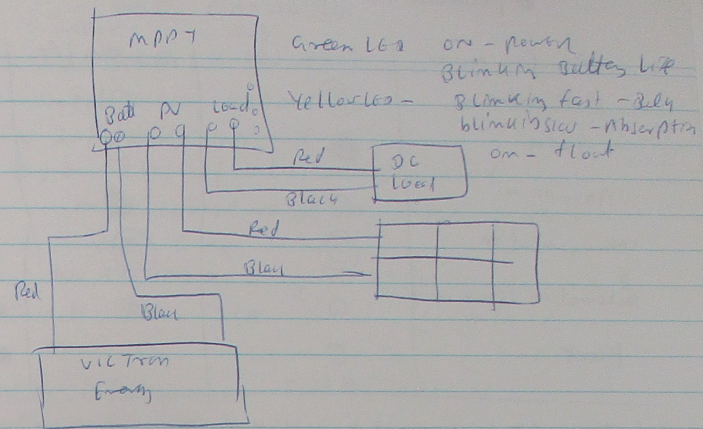 MPPT
Green LED ON - power
Blinking Battery Life
Batt PV Load
Yellow LED - Blinking fast - Bulk
blinking slow - Absorption
on - float
Red
DC
Load
Black
Red
Black
Red
Black
Victron
Energy